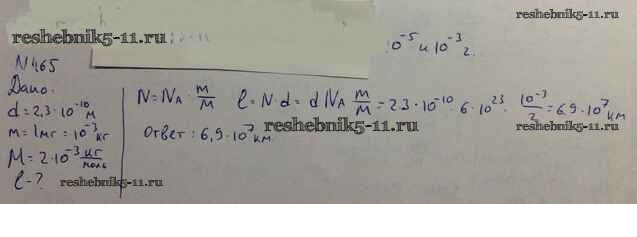 reshebnik5-11.ru
reshebnik5-11.ru
10⁻⁵ и 10⁻³ г.
N 465
Дано:
d = 2,3·10⁻¹⁰ м
m = 1мг = 10⁻³ кг
M = 2·10⁻³ кг/моль
l - ?
N = Nₐ · m/M l = N·d = d Nₐ m/M = 2.3·10⁻¹⁰·6·10²³· 10⁻³/2 = 6,9·10⁷ км
Ответ: 6,9·10⁷ км.
reshebnik5-11.ru
reshebnik5-11.ru
reshebnik5-11.ru
reshebnik5-11.ru